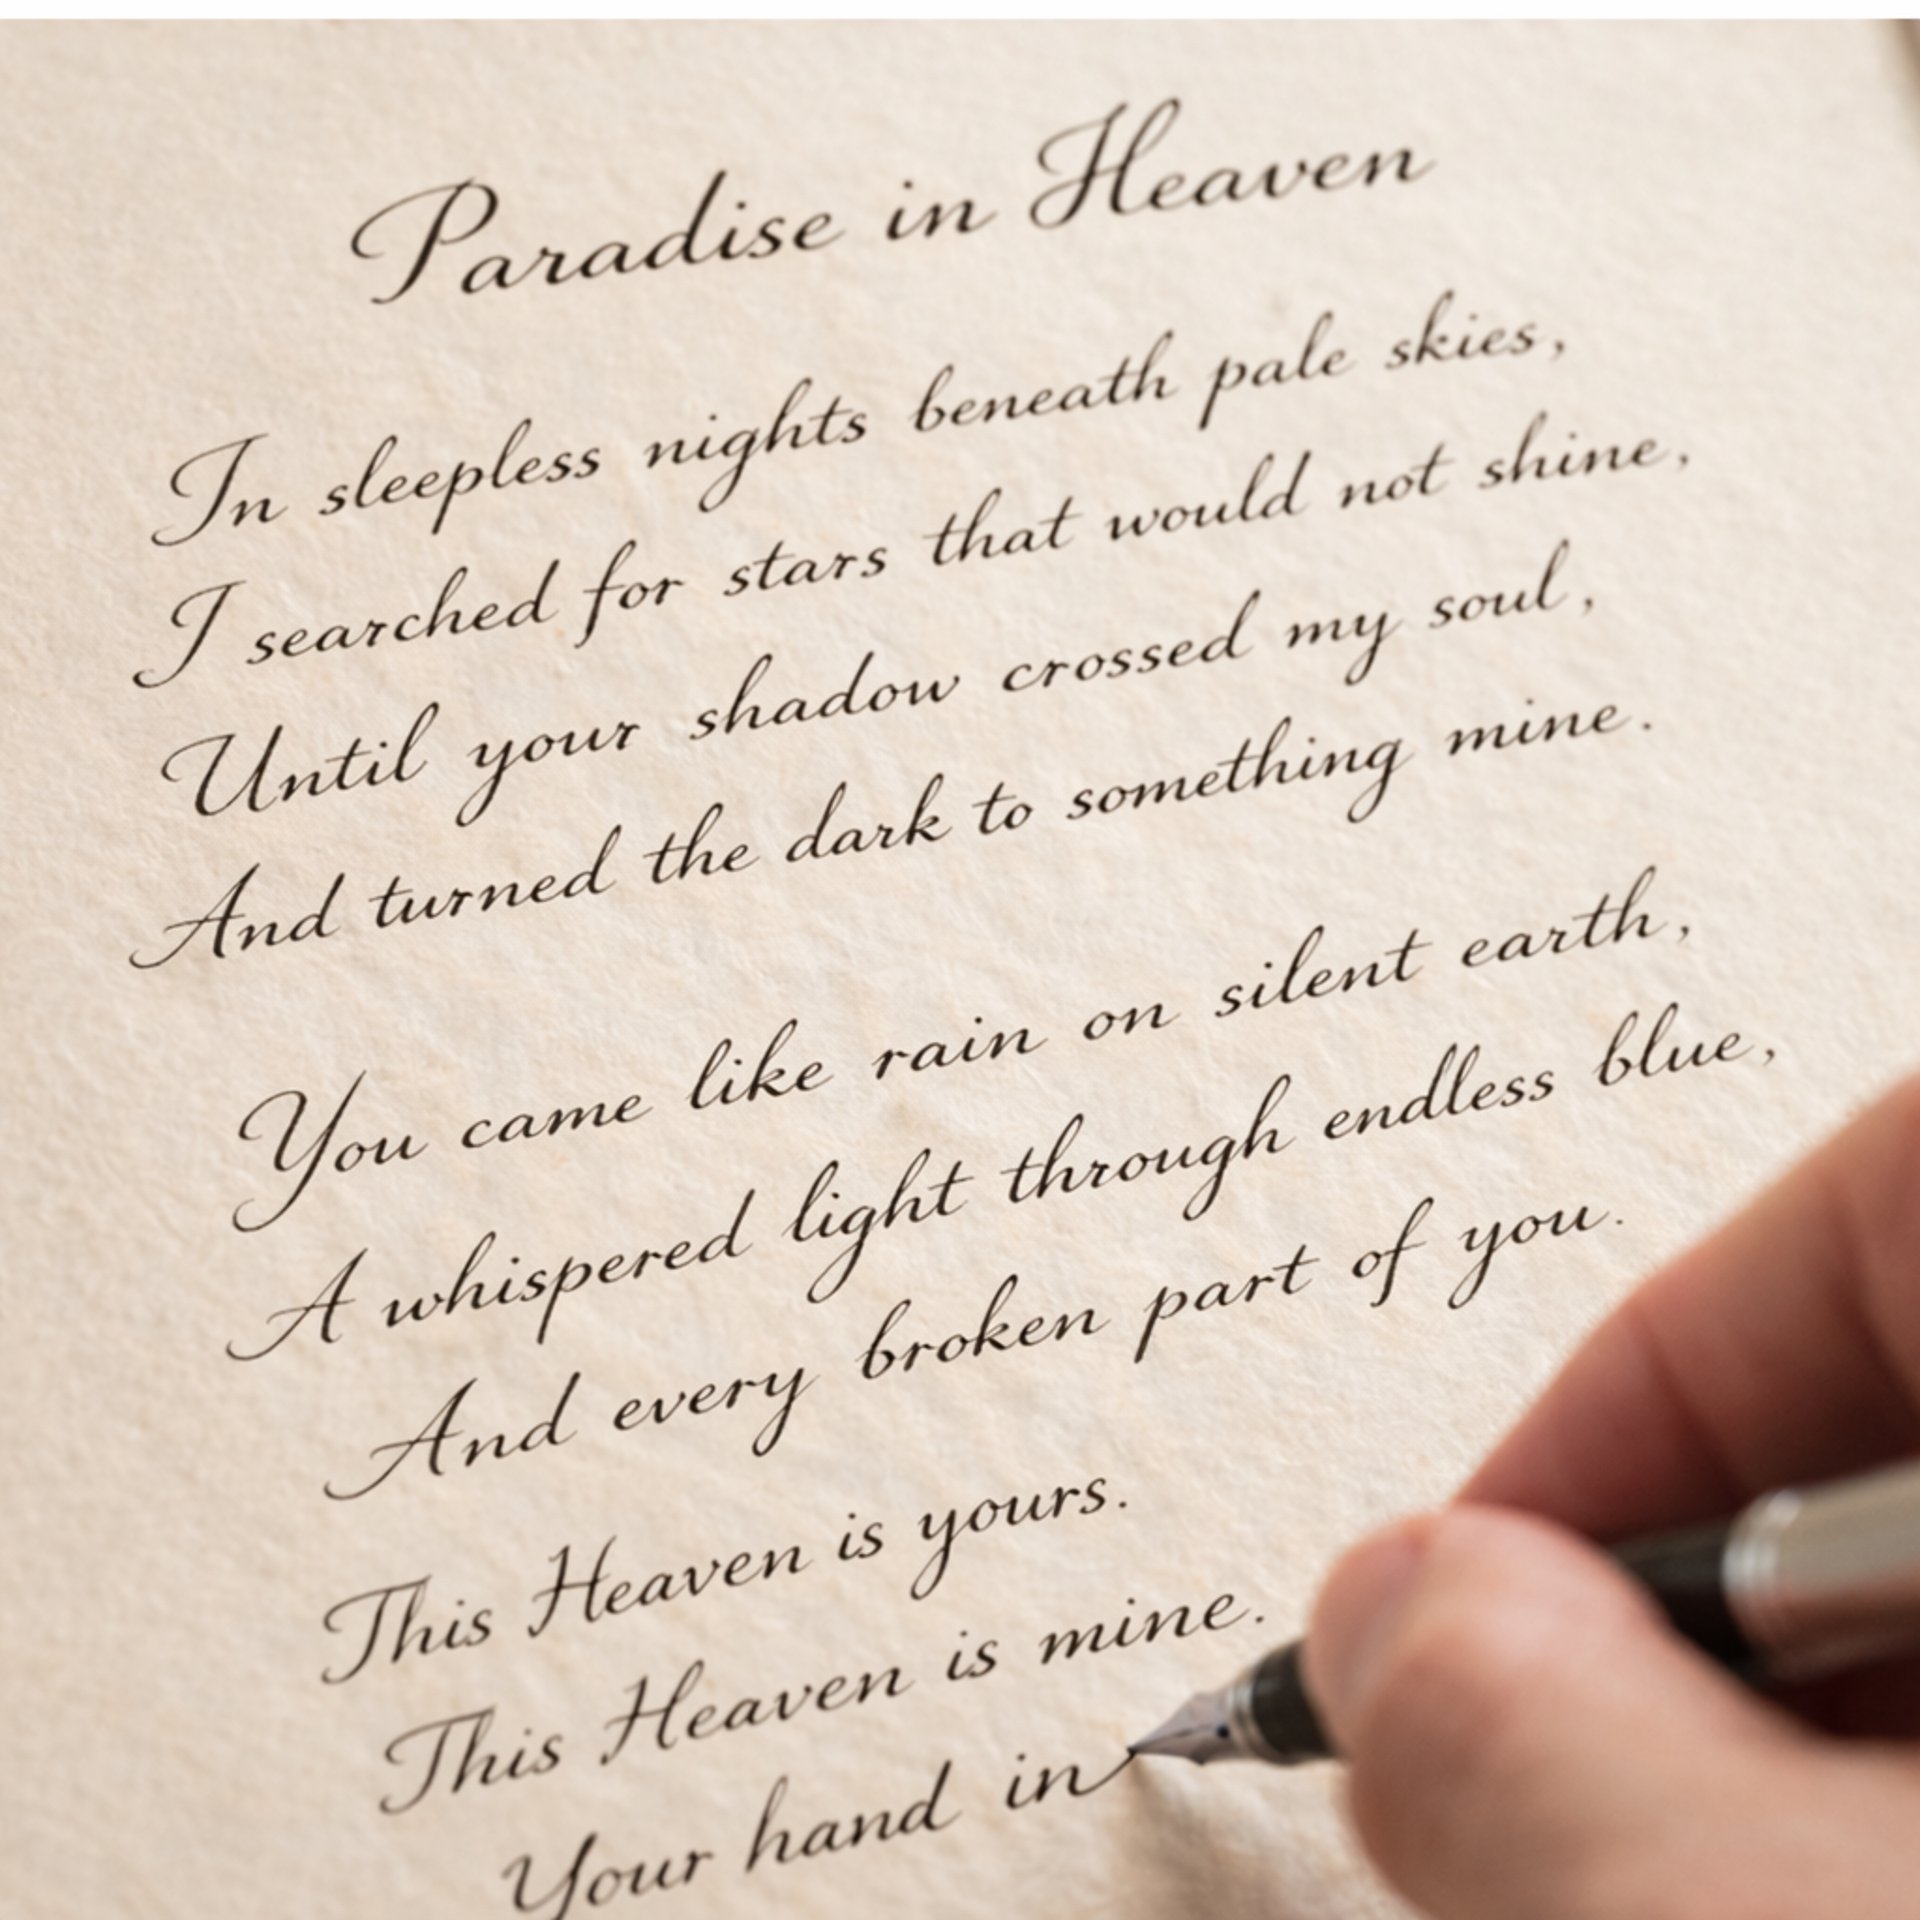 Paradise in Heaven
In sleepless nights beneath pale skies,
I searched for stars that would not shine,
Until your shadow crossed my soul,
And turned the dark to something mine.
You came like rain on silent earth,
A whispered light through endless blue,
And every broken part of you.
This Heaven is yours.
This Heaven is mine.
Your hand in